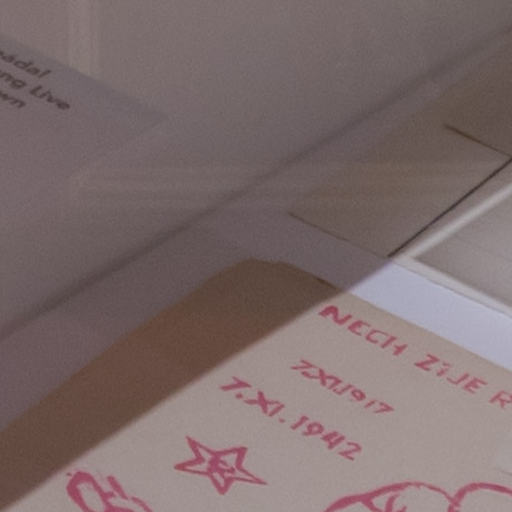 ng Live
NECH ŽIJE R
7.XI.1917
7.XI.1942